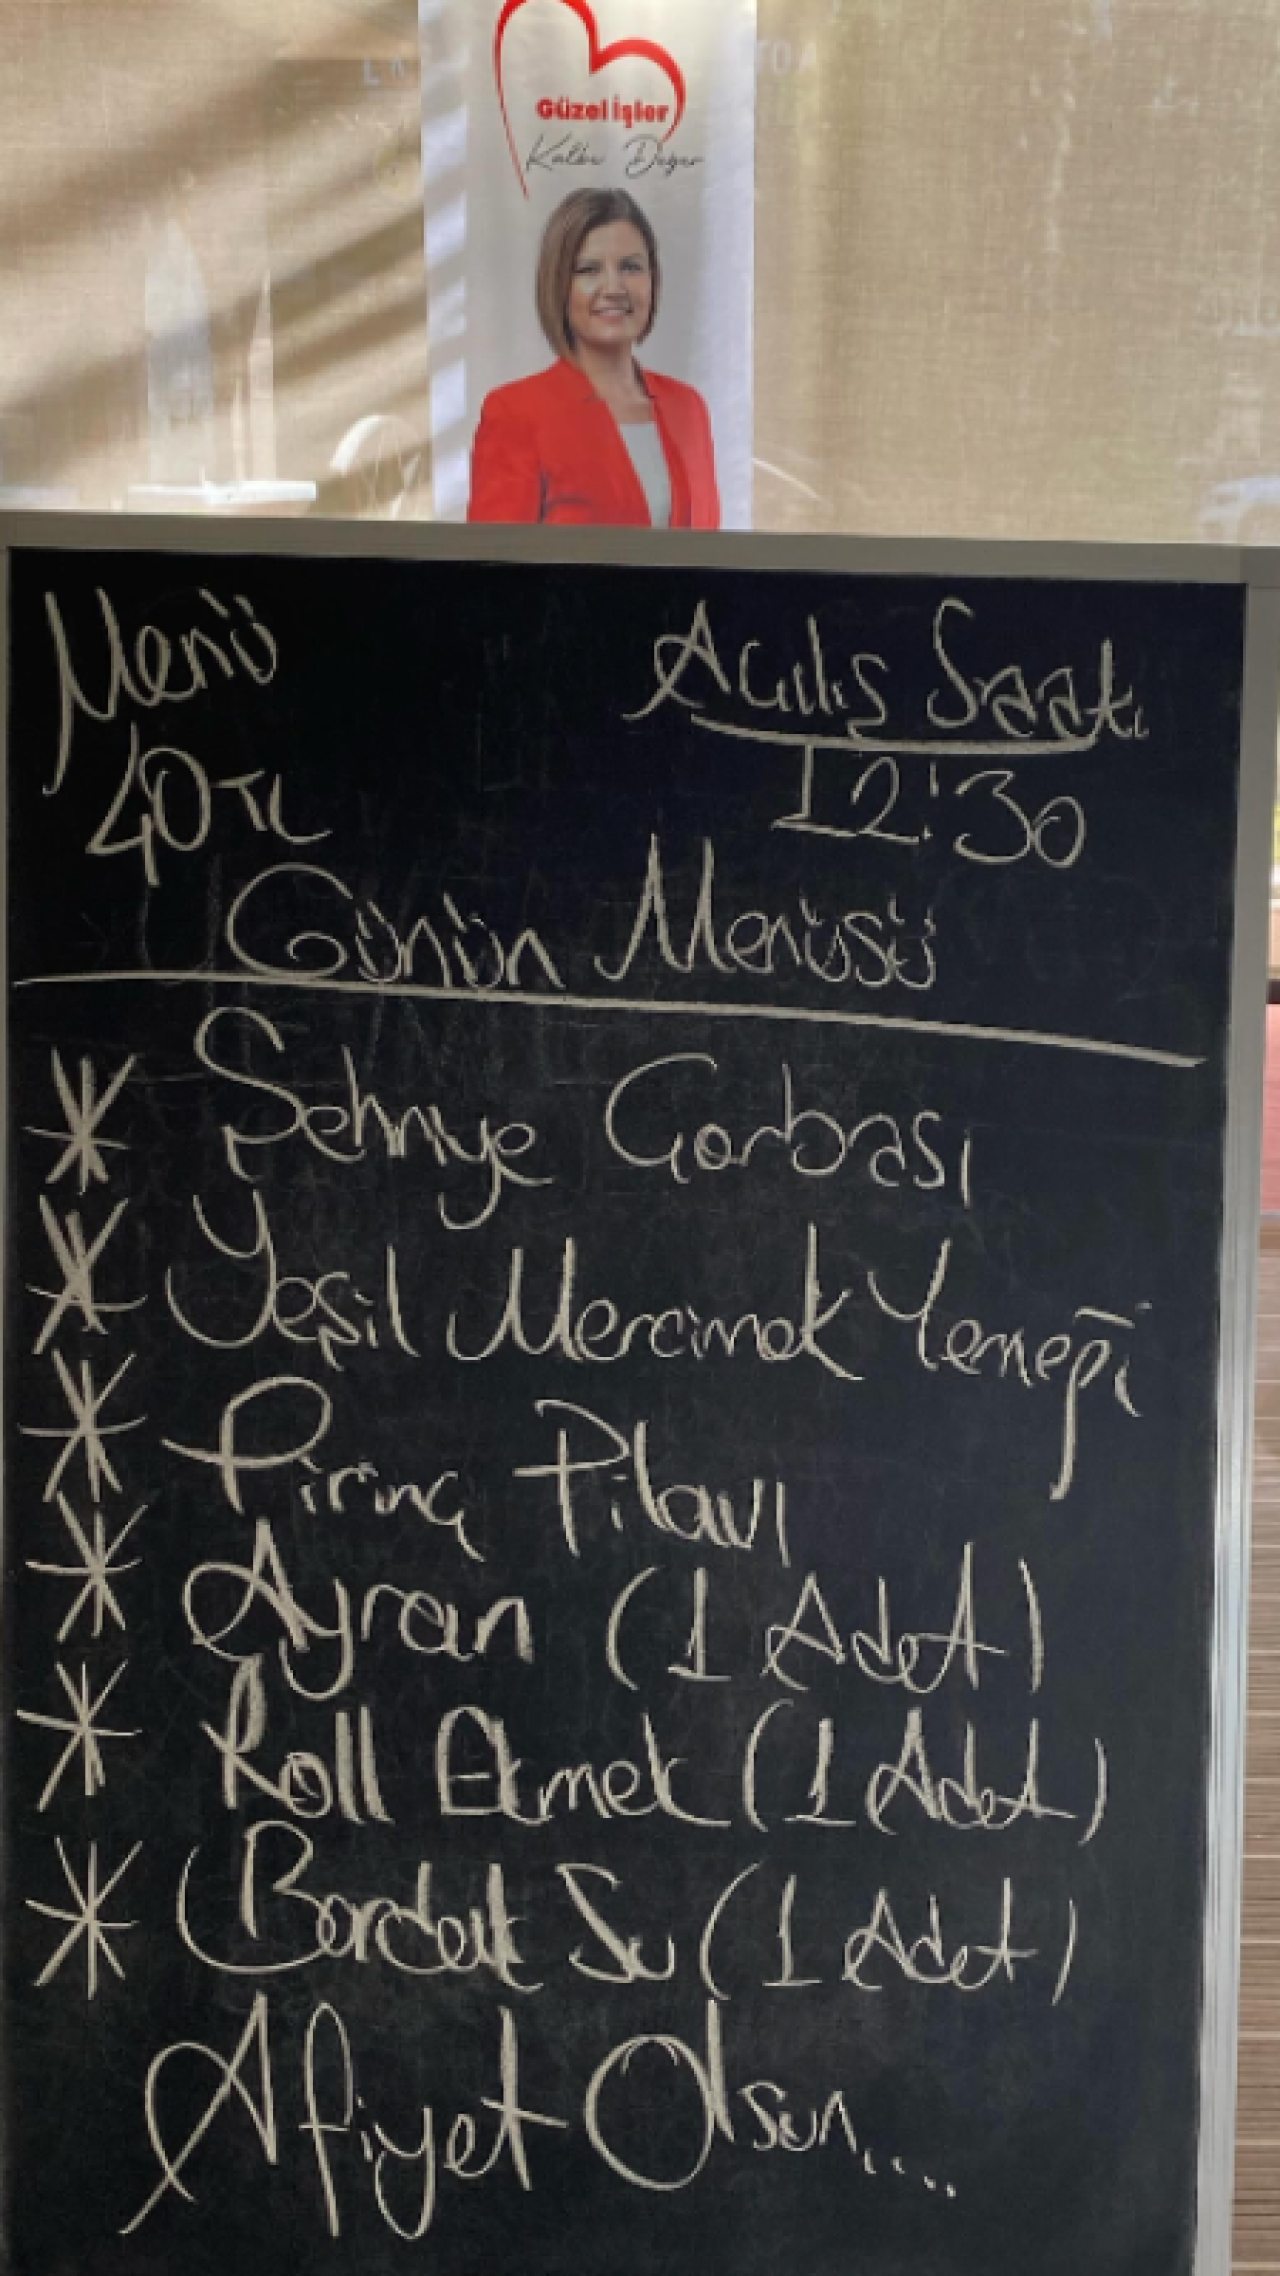 Güzel İşler
Kalbe Değer
Menü
40 TL
Açılış Saati
12:30
Günün Menüsü
* Şehriye Çorbası
* Yeşil Mercimek Yemeği
* Pirinç Pilavı
* Ayran (1 Adet)
* Roll Ekmek (1 Adet)
* Bardak Su (1 Adet)
Afiyet Olsun....